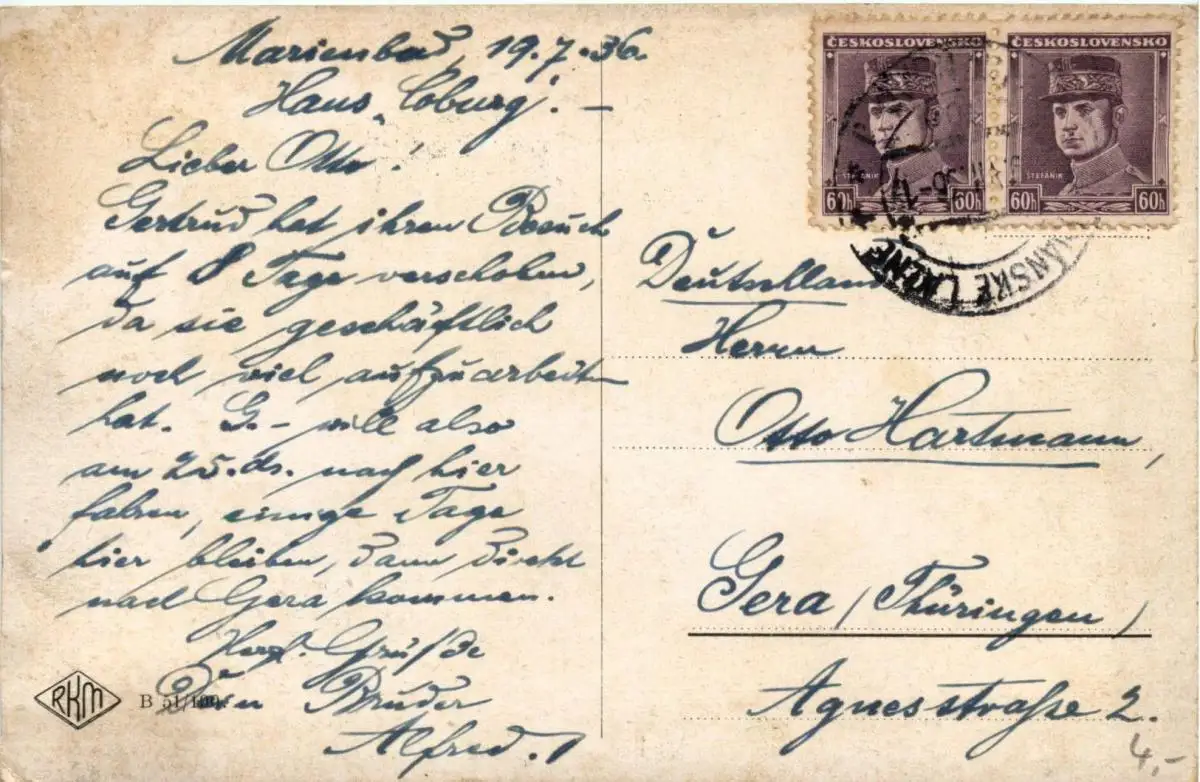 Marienbad, 19.7.36
Haus „Coburg“. –
Lieber Otto!
Gertrud hat ihren Besuch
auf 8 Tage verschoben,
da sie geschäftlich
noch viel aufzuarbeiten
hat. G. – will also
am 25. ds. nach hier
fahren, einige Tage
hier bleiben, dann direkt
nach Gera kommen.
Herzl. Grüße
Dein Bruder
Alfred.
RKM
B 51/100
ČESKOSLOVENSKO
ŠTEFÁNIK
60h 60h
ČESKOSLOVENSKO
ŠTEFÁNIK
60h 60h
ÁNSKÉ LÁZNĚ
Deutschland
Herrn
Otto Hartmann,
Gera (Thüringen)
Agnesstraße 2.
4,-